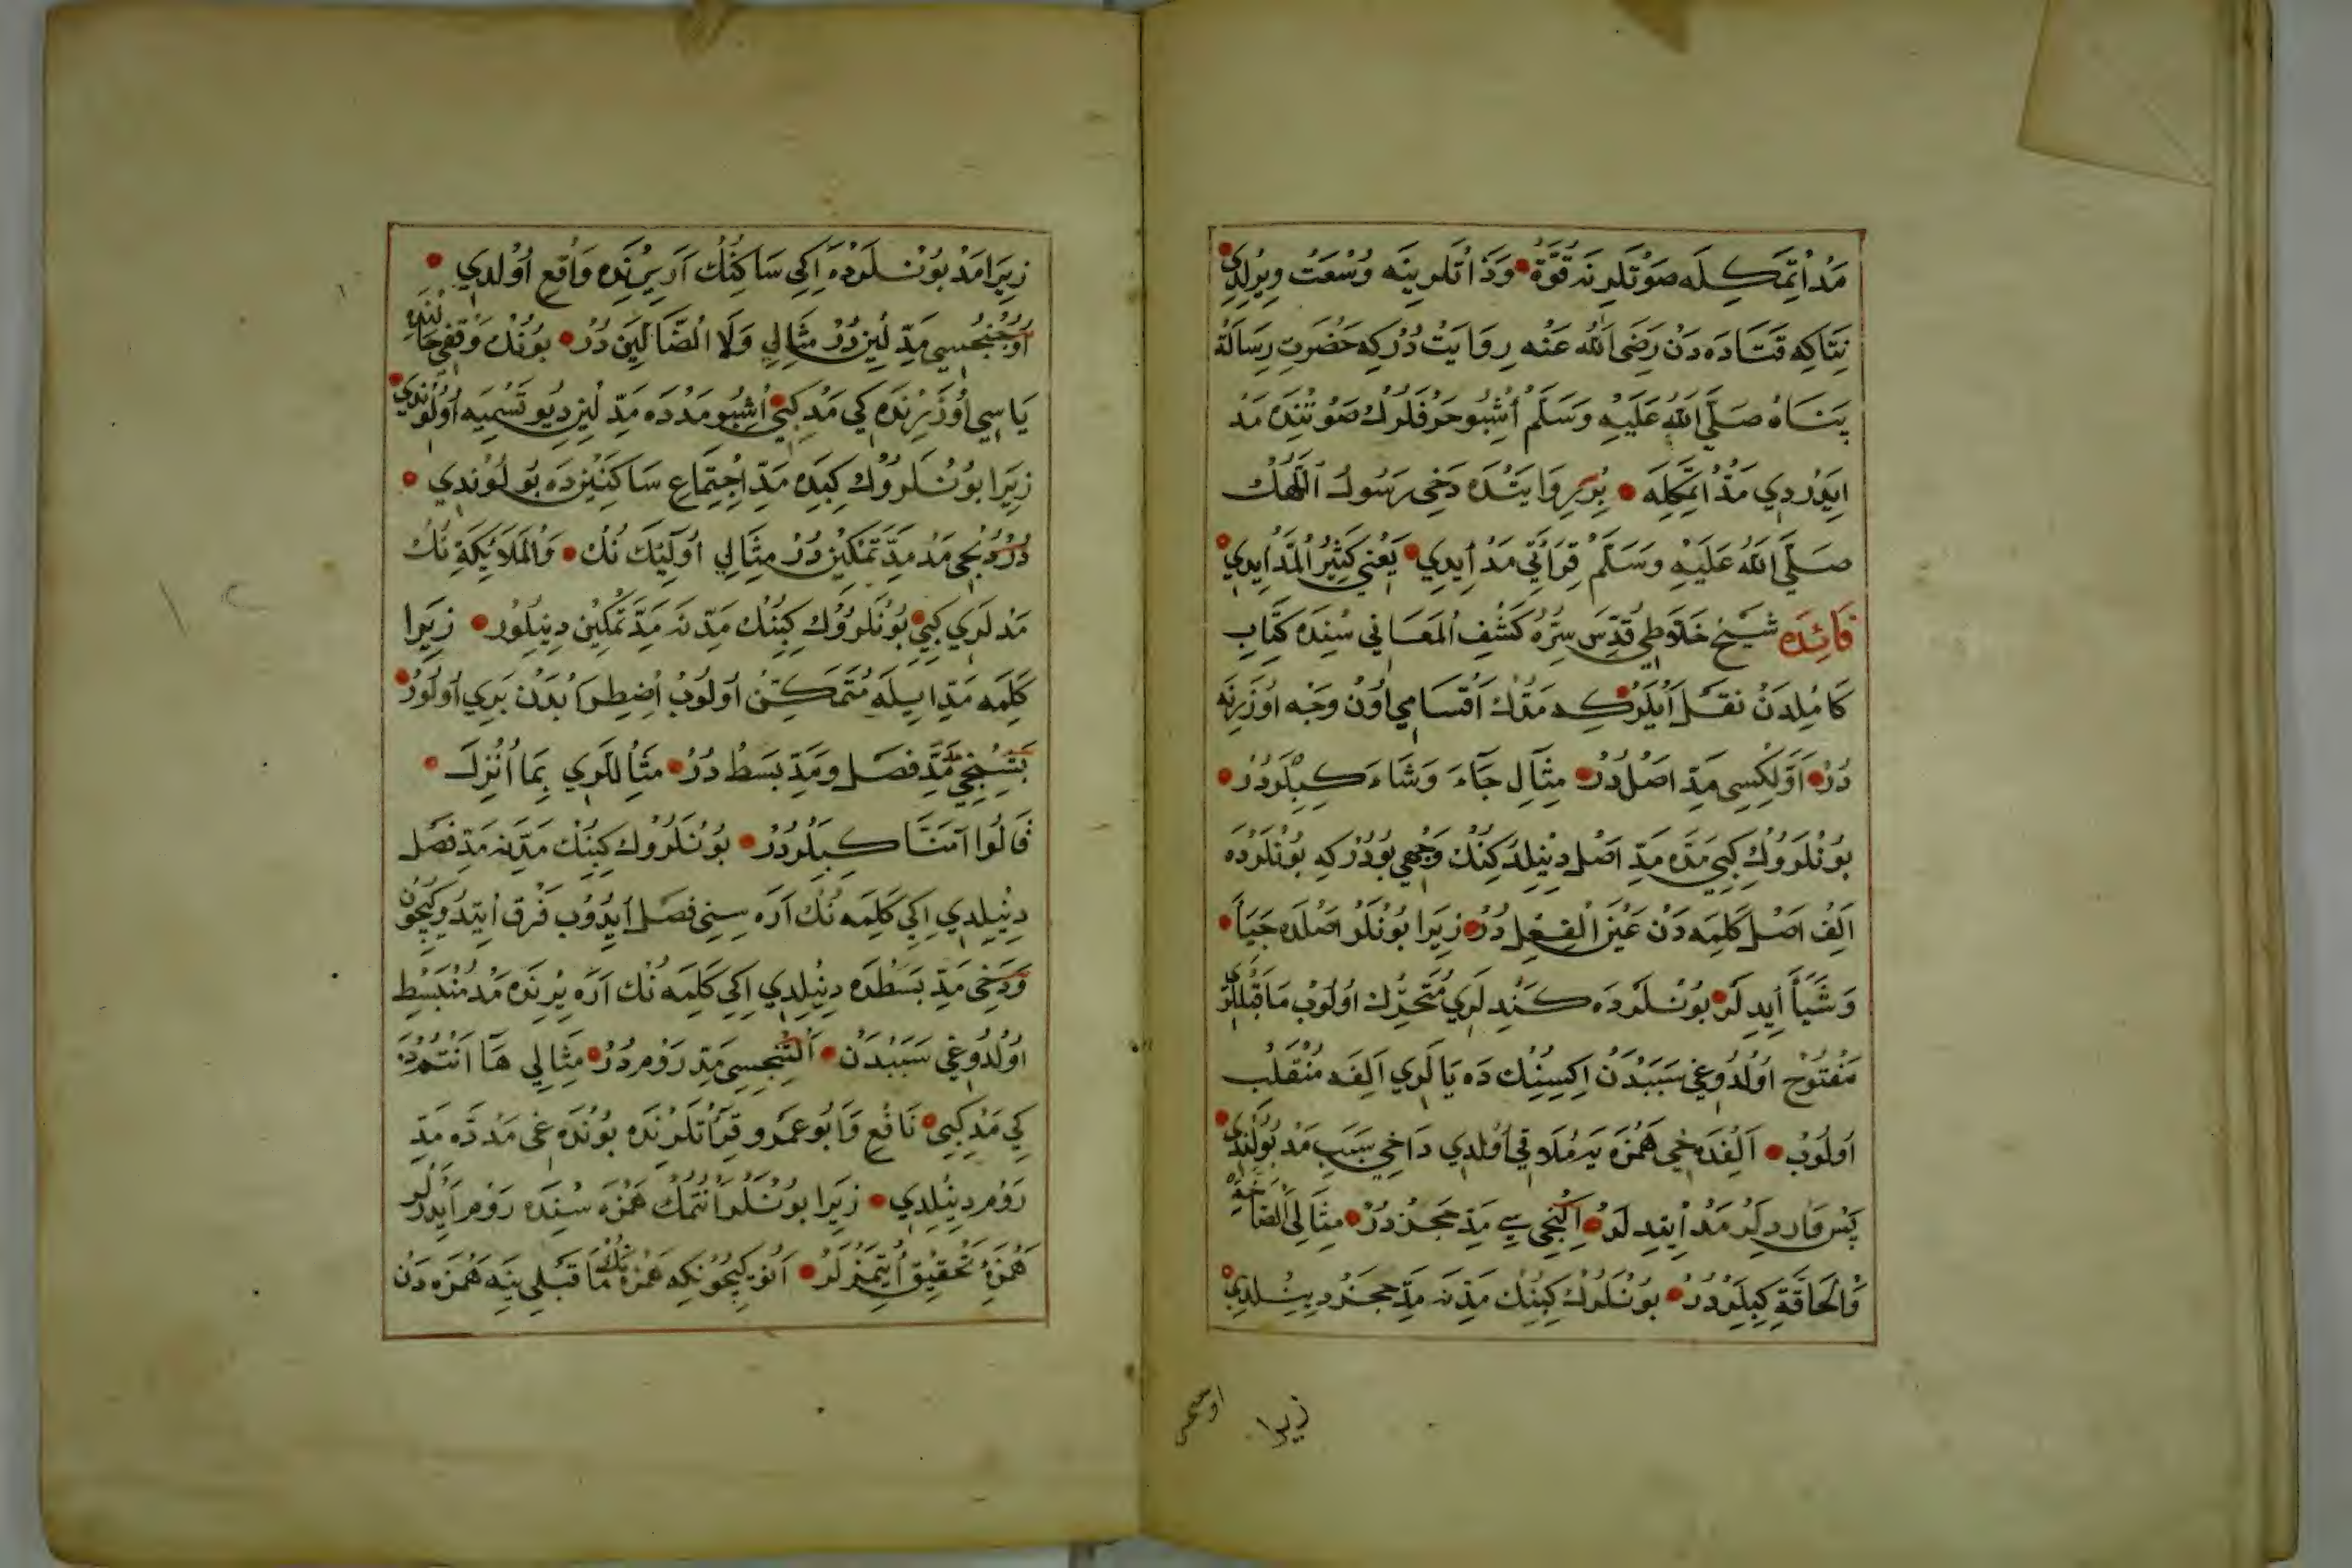 مَدْ اِتْمَكِلَه صَوْتَلَرِنَه قُوَّة وَذَاتَلَرِينَه وُسْعَتْ وِيرِلْدِي
نِتَاكِه قَتَادَه دَنْ رَضِيَ اللّٰهُ عَنْه رِوَايَتْ دُرْكِه حَضْرَتِ رِسَالَة
پَنَاهْ صَلَّى اللّٰهُ عَلَيْهِ وَسَلَّمْ اُشْبُو حَرْفَلَرُكْ صَوْتُنْدَه مَدْ
اِيَدُرْدِي مَدْ اِتْمَكِلَه بِرْ رِوَايَتْدَه دَخِي رَسُولُ اللّٰهُكْ
صَلَّى اللّٰهُ عَلَيْهِ وَسَلَّمْ قِرَائَتِي مَدْ اِيدِي يَعْنِي كَثِيرُ الْمَدّ اِيدِي
فَائِدَه شَيْخ خَلَوَطِي قُدِّسَ سِرُّهُ كَشْفِ الْمَعَانِي سُنْدَه كِتَابِ
كَامِلْدَنْ نَقْلْ اَيْلَرْكِه مَدُّكْ اَقْسَامِي اُونْ وَجْه اُوزَرِنَه
دُرْ اَوَّلْكِسِي مَدِّ اَصْلْ دُرْ مِثَالِ جَآءَ وَشَآءَ كِبِلَرْدُرْ
بُونْلَرُوكْ كِبِي مَدَّه مَدِّ اَصْل دِينِلْدِكِنُكْ وَجْهِي بُودُرْكِه بُونْلَرْدَه
اَلِفْ اَصْلِ كَلِمَه دَنْ عَيْنَ الْفِعْلْ دُرْ زِيرَا بُونْلَرْ اَصْلْدَه جَيَأَ
وَشَيَأَ اِيدِلَرْ بُونْلَرْدَه كَنْدِلَرِي مُتَحَرِّكْ اُولُوبْ مَاقَبْلْلَرِي
مَفْتُوحْ اُولْدُوغِي سَبَبْدَنْ اِكِسِنُكْ دَه يَالَرِي اَلِفَه مُنْقَلِبْ
اُولُوبْ اَلِفْدَخِي هَمْزَه يَه مُلَاقِي اُولْدِي دَاخِي سَبَبِ مَدْ بُولُنْدِي
پَسْ وَارِدِلَرْ مَدْ اِيتِدِلَرْ اِكِنْجِي سِي مَدِّ حَجْزْ دُرْ مِثَالِي الصَّاخَّة
وَالْحَاقَّةِ كِبِلَرْدُرْ بُونْلَرُكْ كِبِنُكْ مَدِّنَه مَدِّ حَجْزْ دِينِلْدِي
زيرا
زِيرَا مَدْ بُونْلَرْدَه اِكِي سَاكِنُكْ اَرَيِرِنْدَه وَاقِعْ اُولْدِي
اُوجُنْجِسِي مَدِّ لِينْ دُرْ مِثَالِي وَلَا الضَّالِّينَ دُرْ بُونُكْ وَقْفِي حَالِنْدَه
يَاسِي اُوزَرِنْدَه كِي مَدْ كِبِي اُشْبُو مَدْدَه مَدِّ لِينْ دِيُو تَسْمِيَه اُولُونْدِي
زِيرَا بُونْلَرُوكْ كِبِدَه مَدِّ اِجْتِمَاعِ سَاكِنَيْنْدَه بُولُونْدِي
دُرْدُنْجِي مَدْ مَدِّ تَمْكِينْ دُرْ مِثَالِي اُولَٓئِكَ نُكْ وَالْمَلَائِكَةِ نُكْ
مَدْلَرِي كِبِي بُونْلَرُوكْ كِبِنُكْ مَدِّنَه مَدِّ تَمْكِينْ دِينِلُورْ زِيرَا
كَلِمَه مَدّ اِيلَه مُتَمَكِّنْ اُولُوبْ اِضْطِرَابْدَنْ بَرِي اُولُورْ
بَشِنْجِي مَدّ مَدِّ فَصْل وَمَدِّ بَسْطْ دُرْ مِثَاللَرِي بِمَا اُنْزِلَ
قَالُوا آمَنَّا كِبِلَرْدُرْ بُونْلَرُوكْ كِبِنُكْ مَدِّنَه مَدِّ فَصْل
دِينِلْدِي اِكِي كَلِمَه نُكْ اَرَه سِنِي فَصْل اِيدُوبْ فَرْق اِيتْدُوكِيچُونْ
وَدَخِي مَدِّ بَسْطْدَه دِينِلْدِي اِكِي كَلِمَه نُكْ اَرَه يِرِنْدَه مَدْ مُنْبَسِطْ
اُولْدُوغِي سَبَبْدَنْ اَلْتِنْجِسِي مَدِّ رَوْم دُرْ مِثَالِي هَآ اَنْتُمْدَه
كِي مَدْ كِبِي نَافِعْ وَابُو عَمْرو قِرَأَتْلَرِنْدَه بُونْدَه غِي مَدْدَه مَدِّ
رَوْم دِينِلْدِي زِيرَا بُونْلَرْ اَنْتُمُكْ هَمْزَه سُنْدَه رَوْم اَيْدَرْلَرْ
هَمْزَهْ تَحْقِيقْ اِيتْمَزْلَرْ اَنُوكِيچُونْكِه هَمْزَه نُكْ مَا قَبْلِينَه هَمْزَه دَنْ